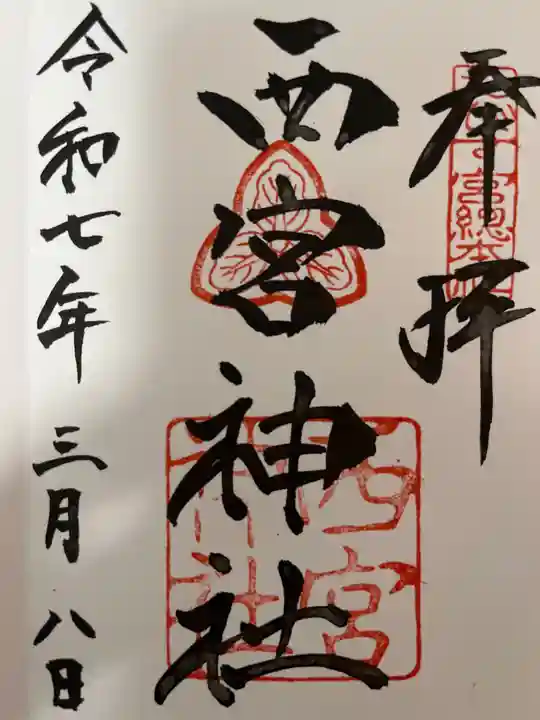 奉拝
西宮神社
西宮神社
令和七年三月八日